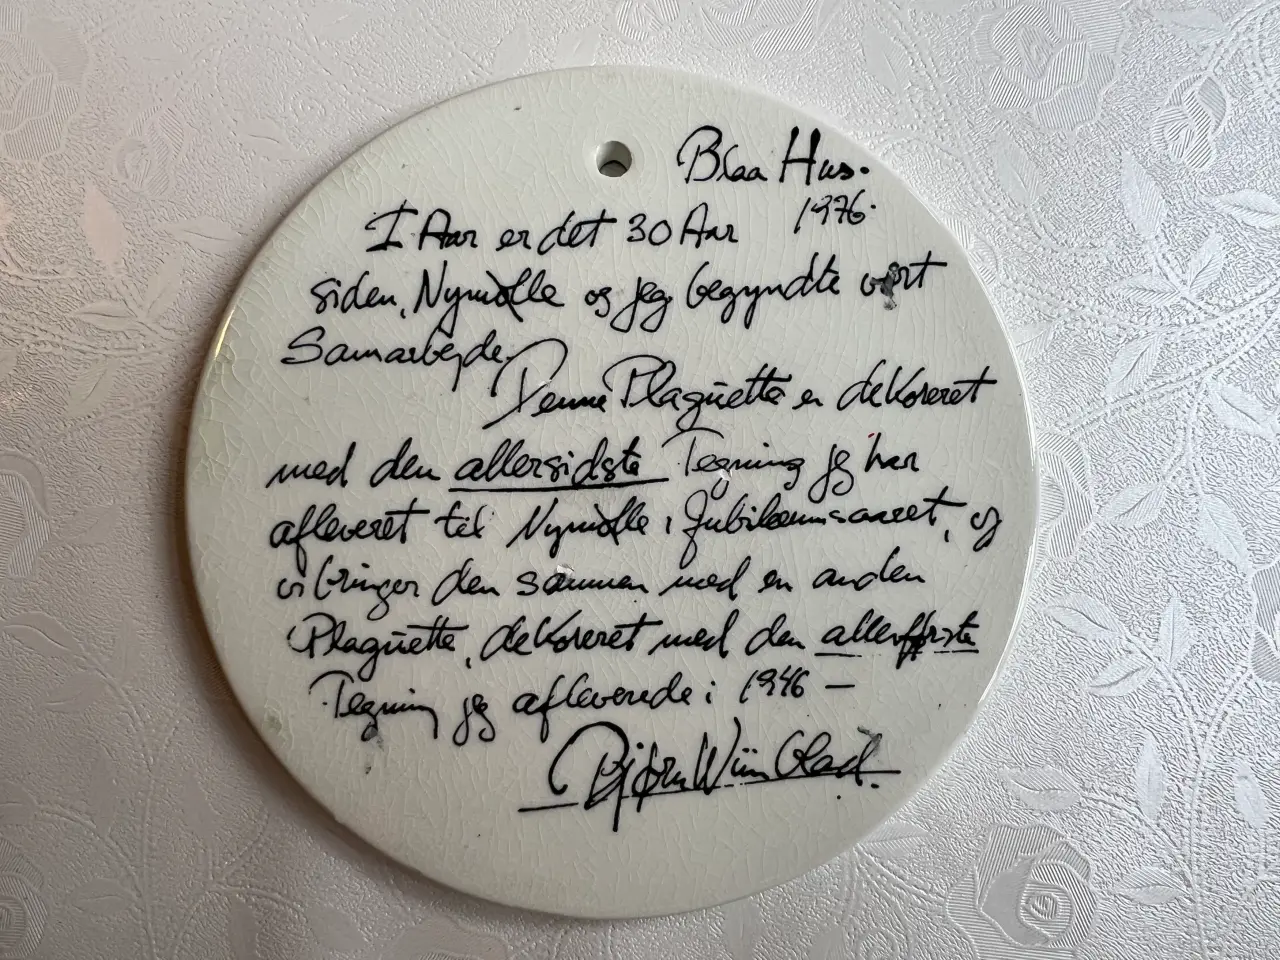 Blaa Hus.
1976.
I Aar er det 30 Aar
siden, Nymølle og jeg begyndte vort
Samarbejde.
Denne Plaquette er dekoreret
med den allersidste Tegning jeg har
afleveret til Nymølle i Jubilæumsaaret, og
vi bringer den sammen med en anden
Plaquette, dekoreret med den allerførste
Tegning jeg afleverede i 1946 —
Bjørn Wiinblad.